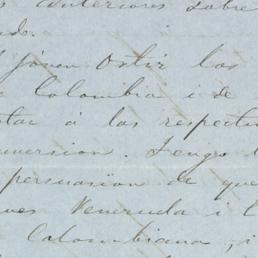 anteriores sobre
do.
jóven Ostir las
Colombia i de
tar á las respecti
version. Tengo
persuasion de que
ves Venezuela i
Colombiana, i